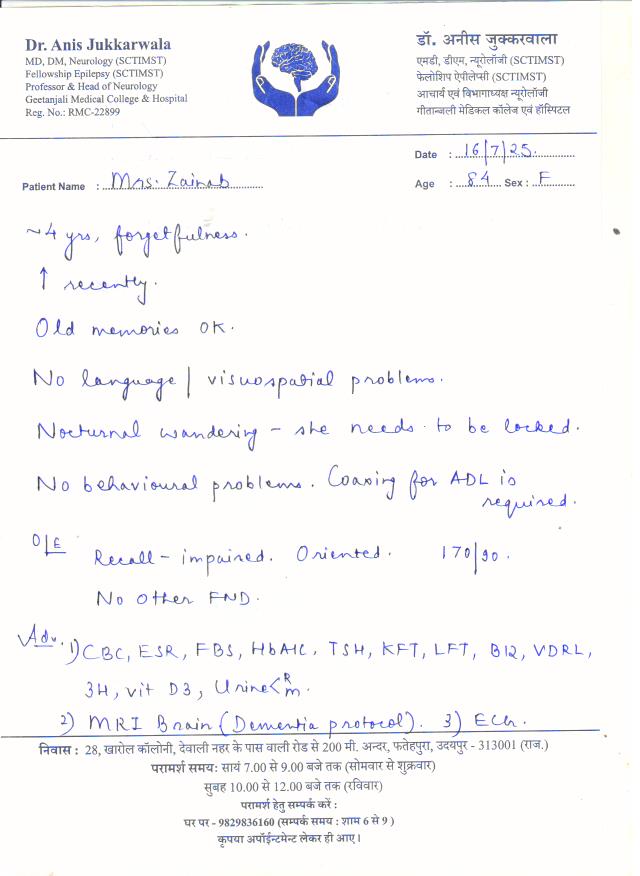 Dr. Anis Jukkarwala
MD, DM, Neurology (SCTIMST)
Fellowship Epilepsy (SCTIMST)
Professor & Head of Neurology
Geetanjali Medical College & Hospital
Reg. No.: RMC-22899
डॉ. अनीस जुक्करवाला
एमडी, डीएम, न्यूरोलॉजी (SCTIMST)
फेलोशिप ऐपीलेप्सी (SCTIMST)
आचार्य एवं विभागाध्यक्ष न्यूरोलॉजी
गीतान्जली मेडिकल कॉलेज एवं हॉस्पिटल
Date : 16/7/25.
Patient Name : Mrs. Zainab
Age : 84 Sex : F
~4 yrs, forgetfulness.
↑ recently.
Old memories OK.
No language / visuospatial problems.
Nocturnal wandering - she needs to be locked.
No behavioural problems. Coaxing for ADL is
required.
O/E Recall - impaired. Oriented. 170/90.
No other FND.
Adv. 1) CBC, ESR, FBS, HbA1C, TSH, KFT, LFT, B12, VDRL,
3H, vit D3, Urine < R m.
2) MRI Brain (Dementia protocol). 3) ECG.
निवास : 28, खारोल कॉलोनी, देवाली नहर के पास वाली रोड से 200 मी. अन्दर, फतेहपुरा, उदयपुर - 313001 (राज.)
परामर्श समय: सायं 7.00 से 9.00 बजे तक (सोमवार से शुक्रवार)
सुबह 10.00 से 12.00 बजे तक (रविवार)
परामर्श हेतु सम्पर्क करें :
घर पर - 9829836160 (सम्पर्क समय : शाम 6 से 9 )
कृपया अपॉईन्टमेन्ट लेकर ही आए।